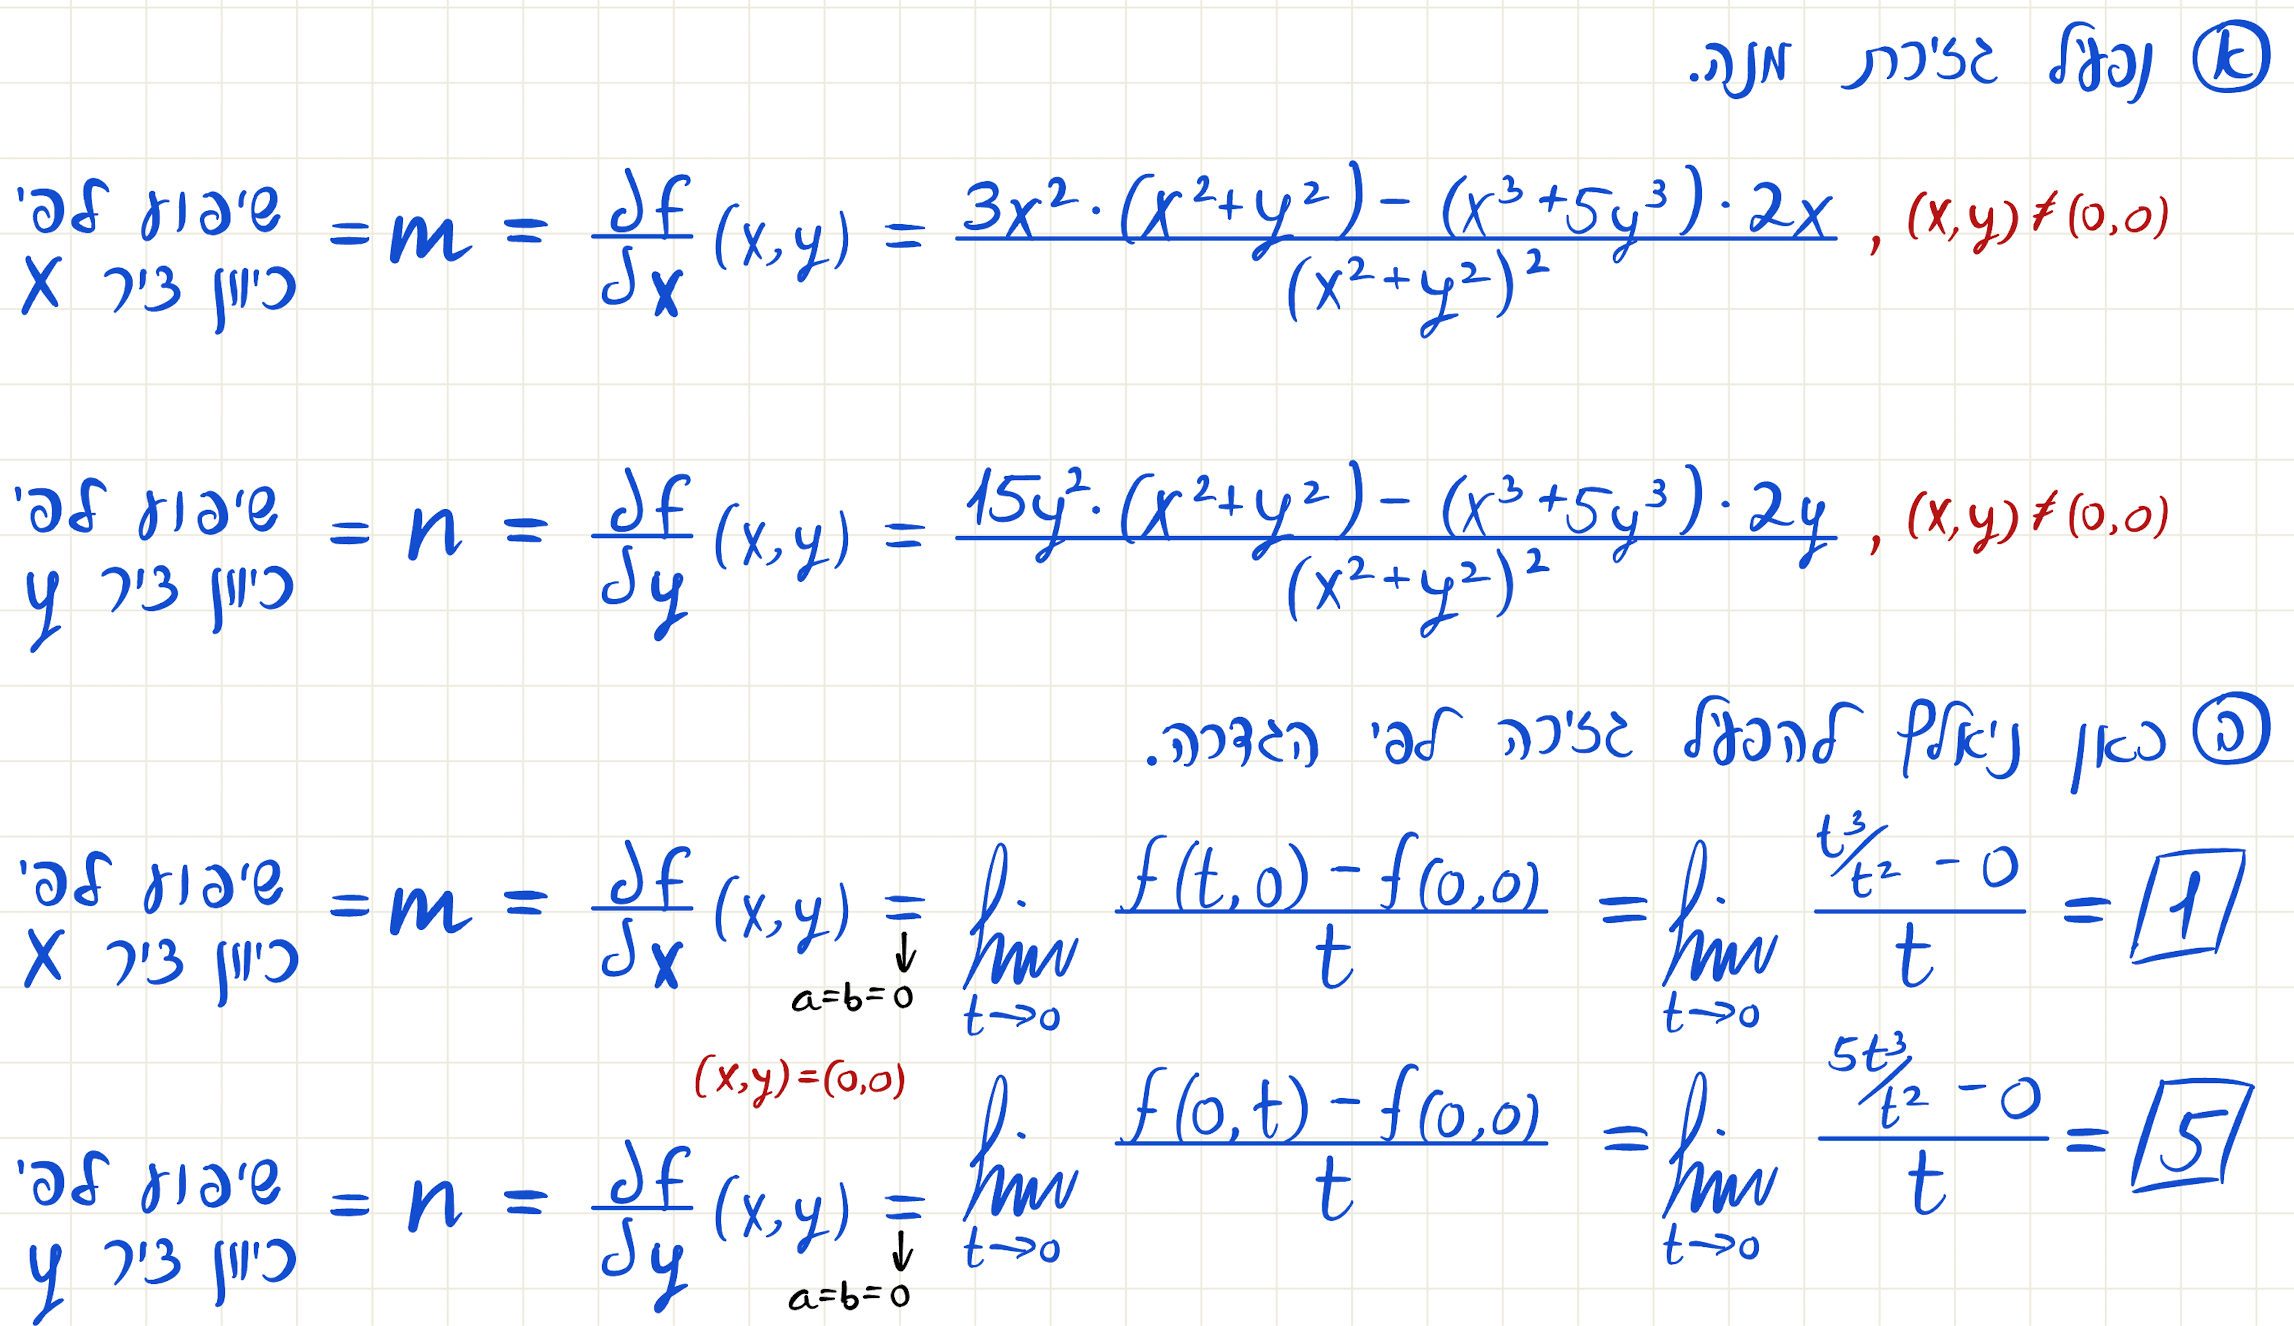 א נפעיל גזירת מנה.
שיפוע לפי כיוון ציר x = m = ∂f/∂x (x,y) = (3x²·(x²+y²) - (x³+5y³)·2x) / (x²+y²)² , (x,y)≠(0,0)
שיפוע לפי כיוון ציר y = n = ∂f/∂y (x,y) = (15y²·(x²+y²) - (x³+5y³)·2y) / (x²+y²)² , (x,y)≠(0,0)
ב כאן ניאלץ להפעיל גזירה לפי הגדרה.
שיפוע לפי כיוון ציר x = m = ∂f/∂x (x,y) = lim t→0 (f(t,0) - f(0,0)) / t = lim t→0 (t³/t² - 0) / t = 1
↓ a=b=0
(x,y)=(0,0)
שיפוע לפי כיוון ציר y = n = ∂f/∂y (x,y) = lim t→0 (f(0,t) - f(0,0)) / t = lim t→0 (5t³/t² - 0) / t = 5
↓ a=b=0